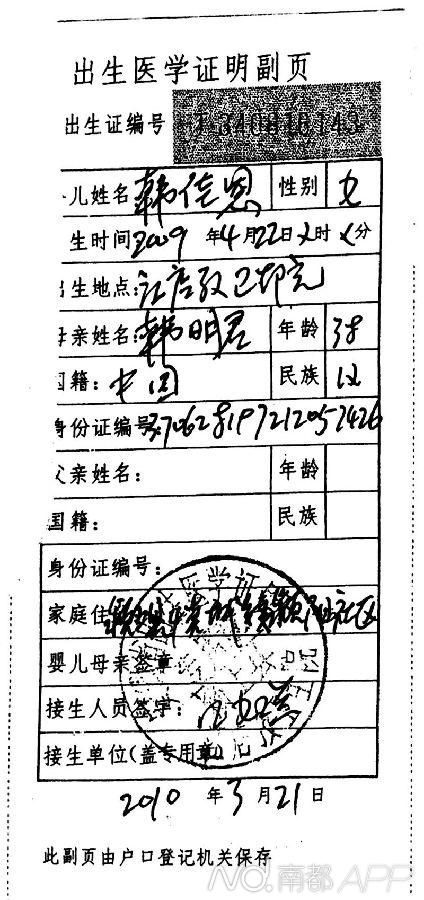 出生医学证明副页
出生证编号 J 340816143
儿姓名 韩佳恩 性别 女
生时间 2009 年 4 月 22 日 时 分
出生地点:
母亲姓名: 韩明君 年龄 38
国籍: 中国 民族 汉
身份证编号 370628197212057426
父亲姓名: 年龄
国籍: 民族
身份证编号:
家庭住
婴儿母亲签章
接生人员签字:
接生单位(盖专用章)
2010 年 3 月 21 日
此副页由户口登记机关保存
NO.南都APP